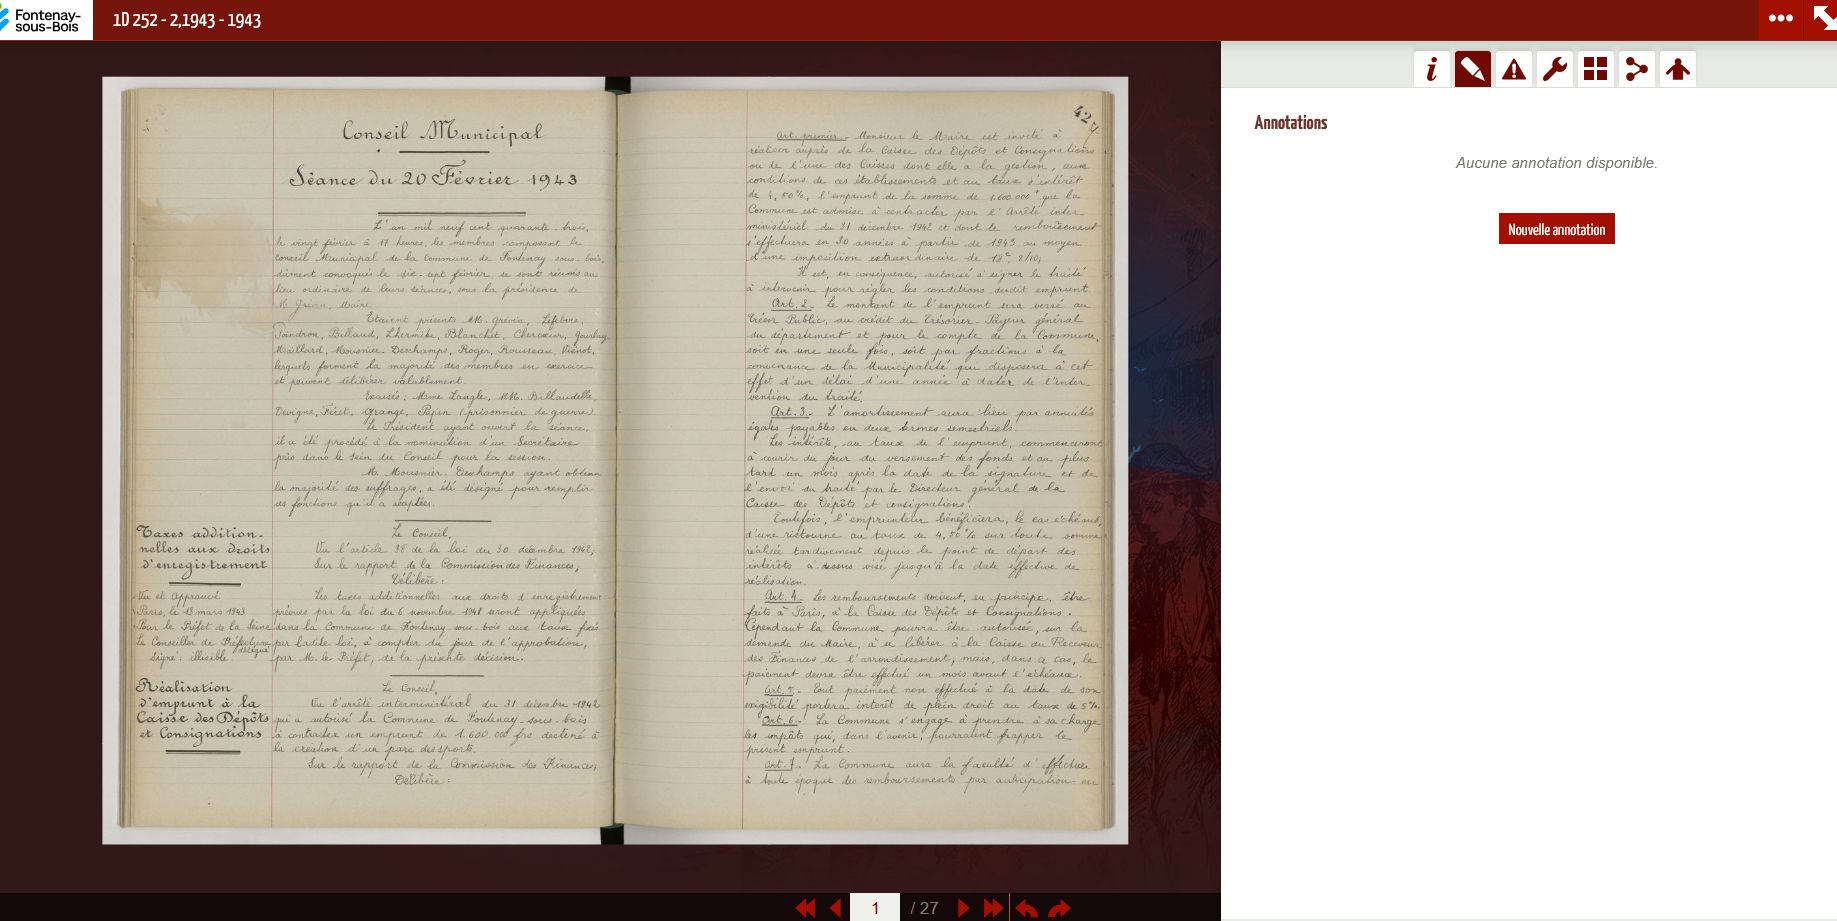 Fontenay-
sous-Bois
1D 252 - 2,1943 - 1943
Conseil Municipal
Séance du 20 Février 1943
L'an mil neuf cent quarante-trois,
le vingt février à 17 heures, les membres composant le
Conseil Municipal de la Commune de Fontenay-sous-bois,
dûment convoqués le dix-sept février, se sont réunis au
lieu ordinaire de leurs séances, sous la présidence de
M. Grévin, Maire.
Etaient présents MM. Grévin, Lefebvre,
Billaud, Lhermite, Blanchet,
Maillard, Mousnier-Deschamps, Roger, Rousseau, Viénot,
lesquels forment la majorité des membres en exercice
et peuvent délibérer valablement.
Excusés : Mme Langle, MM. Billaudelle,
Devigne, Féret, Grange, Pajin (prisonnier de guerre).
Le Président ayant ouvert la séance,
il a été procédé à la nomination d'un Secrétaire
pris dans le sein du Conseil pour la session.
M. Mousnier-Deschamps ayant obtenu
la majorité des suffrages, a été désigné pour remplir
ces fonctions qu'il a acceptées.
Taxes addition-
nelles aux droits
d'enregistrement
Vu et Approuvé
Paris, le 13 mars 1943
Pour le Préfet de la Seine
Le Conseiller de Préfecture
délégué
Signé : illisible
Le Conseil,
Vu l'article 38 de la loi du 30 décembre 1942;
Sur le rapport de la Commission des Finances;
Délibère :
Les taxes additionnelles aux droits d'enregistrement
prévues par la loi du 6 novembre 1941 seront appliquées
dans la Commune de Fontenay-sous-bois aux taux fixés
par ladite loi, à compter du jour de l'approbation,
par M. le Préfet, de la présente décision.
Réalisation
d'emprunt à la
Caisse des Dépôts
et Consignations
Le Conseil,
Vu l'arrêté interministériel du 31 décembre 1942
qui a autorisé la Commune de Fontenay-sous-bois
à contracter un emprunt de 1.600.000 frs destiné à
la création d'un parc des sports.
Sur le rapport de la Commission des Finances;
Délibère :
Art. premier.- Monsieur le Maire est invité à
réaliser auprès de la Caisse des Dépôts et Consignations
ou de l'une des Caisses dont elle a la gestion, aux
conditions de ces établissements et au taux d'intérêt
de 4,50%, l'emprunt de la somme de 1.600.000 f que la
Commune est admise à contracter par l'Arrêté inter-
ministériel du 31 décembre 1942 et dont le remboursement
s'effectuera en 30 années à partir de 1943 au moyen
d'une imposition extraordinaire de 18c, 8/10;
Il est, en conséquence, autorisé à signer le traité
à intervenir pour régler les conditions dudit emprunt.
Art. 2.- Le montant de l'emprunt sera versé au
Trésor Public, au crédit du Trésorier-Payeur général
du département et pour le compte de la Commune,
soit en une seule fois, soit par fractions à la
convenance de la Municipalité qui disposera à cet
effet d'un délai d'une année à dater de l'inter-
vention du traité.
Art. 3.- L'amortissement aura lieu par annuités
égales payables en deux termes semestriels.
Les intérêts, au taux de l'emprunt, commenceront
à courir du jour du versement des fonds et au plus
tard un mois après la date de la signature et de
l'envoi du traité par le Directeur général de la
Caisse des Dépôts et consignations.
Toutefois, l'emprunteur bénéficiera, le cas échéant,
d'une ristourne au taux de 4,50% sur toute somme
réalisée tardivement depuis le point de départ des
intérêts ci-dessus visé jusqu'à la date effective de
réalisation.
Art. 4.- Les remboursements doivent, en principe, être
faits à Paris, à la Caisse des Dépôts et Consignations.
Cependant la Commune pourra être autorisée, sur la
demande du Maire, à se libérer à la Caisse du Receveur
des Finances de l'arrondissement; mais, dans ce cas, le
paiement devra être effectué un mois avant l'échéance.
Art. 5.- Tout paiement non effectué à la date de son
exigibilité portera intérêt de plein droit au taux de 5%.
Art. 6.- La Commune s'engage à prendre à sa charge
les impôts qui, dans l'avenir, pourraient frapper le
présent emprunt.
Art. 7.- La Commune aura la faculté d'effectuer
à toute époque des remboursements par anticipation au
1
/ 27
Annotations
Aucune annotation disponible.
Nouvelle annotation